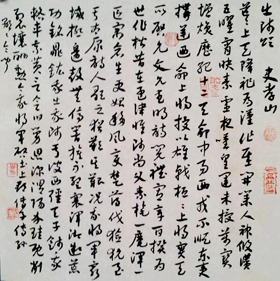 出師頌 史孝山
茫茫上天降祚為漢作基開業人神攸贊
五曜霄映素靈夜歎皇運未授萬寶
增煥歷紀十二天命中易西戎不順東夷
構逆乃命上將授以雄戟桓桓上將實天
所啟允文允武明詩閱禮憲章百揆為
世作楷昔在孟津惟師尚父素旄一麾渾一
區宇蒼生更始朔風變楚薄伐獫狁至
于太原詩人歌之猶歎其艱況我將軍窮
城極邊鼓無停響旗不蹔褰澤霑遐荒
功銘鼎鉉我出我師于彼西疆天子餞我
路車乘黃言念伯舅恩深渭陽介珪既削
裂壤酬勳今我將軍啟土上郡傳子傳孫
顯顯令問